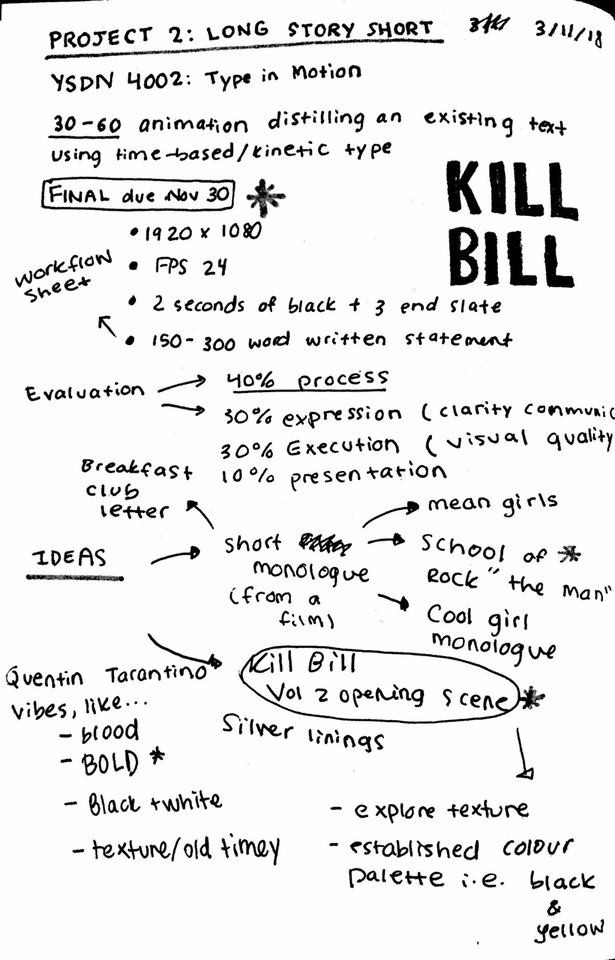 PROJECT 2: LONG STORY SHORT 3/11/18
YSDN 4002: Type in Motion
30-60 animation distilling an existing text
using time-based/kinetic type
FINAL due Nov 30 *
KILL
BILL
• 1920 x 1080
• FPS 24
• 2 seconds of black + 3 end slate
• 150-300 word written statement
workflow
sheet
Evaluation → 40% process
→ 30% expression (clarity communic
30% Execution (visual quality
10% presentation
Breakfast
club
letter
IDEAS → short
monologue
(from a
film)
mean girls
School of *
Rock "the man"
Cool girl
monologue
Kill Bill
Vol 2 opening scene *
Silver linings
Quentin Tarantino
vibes, like...
- blood
- BOLD *
- Black + white
- texture/old timey
- explore texture
- established colour
palette i.e. black
&
yellow